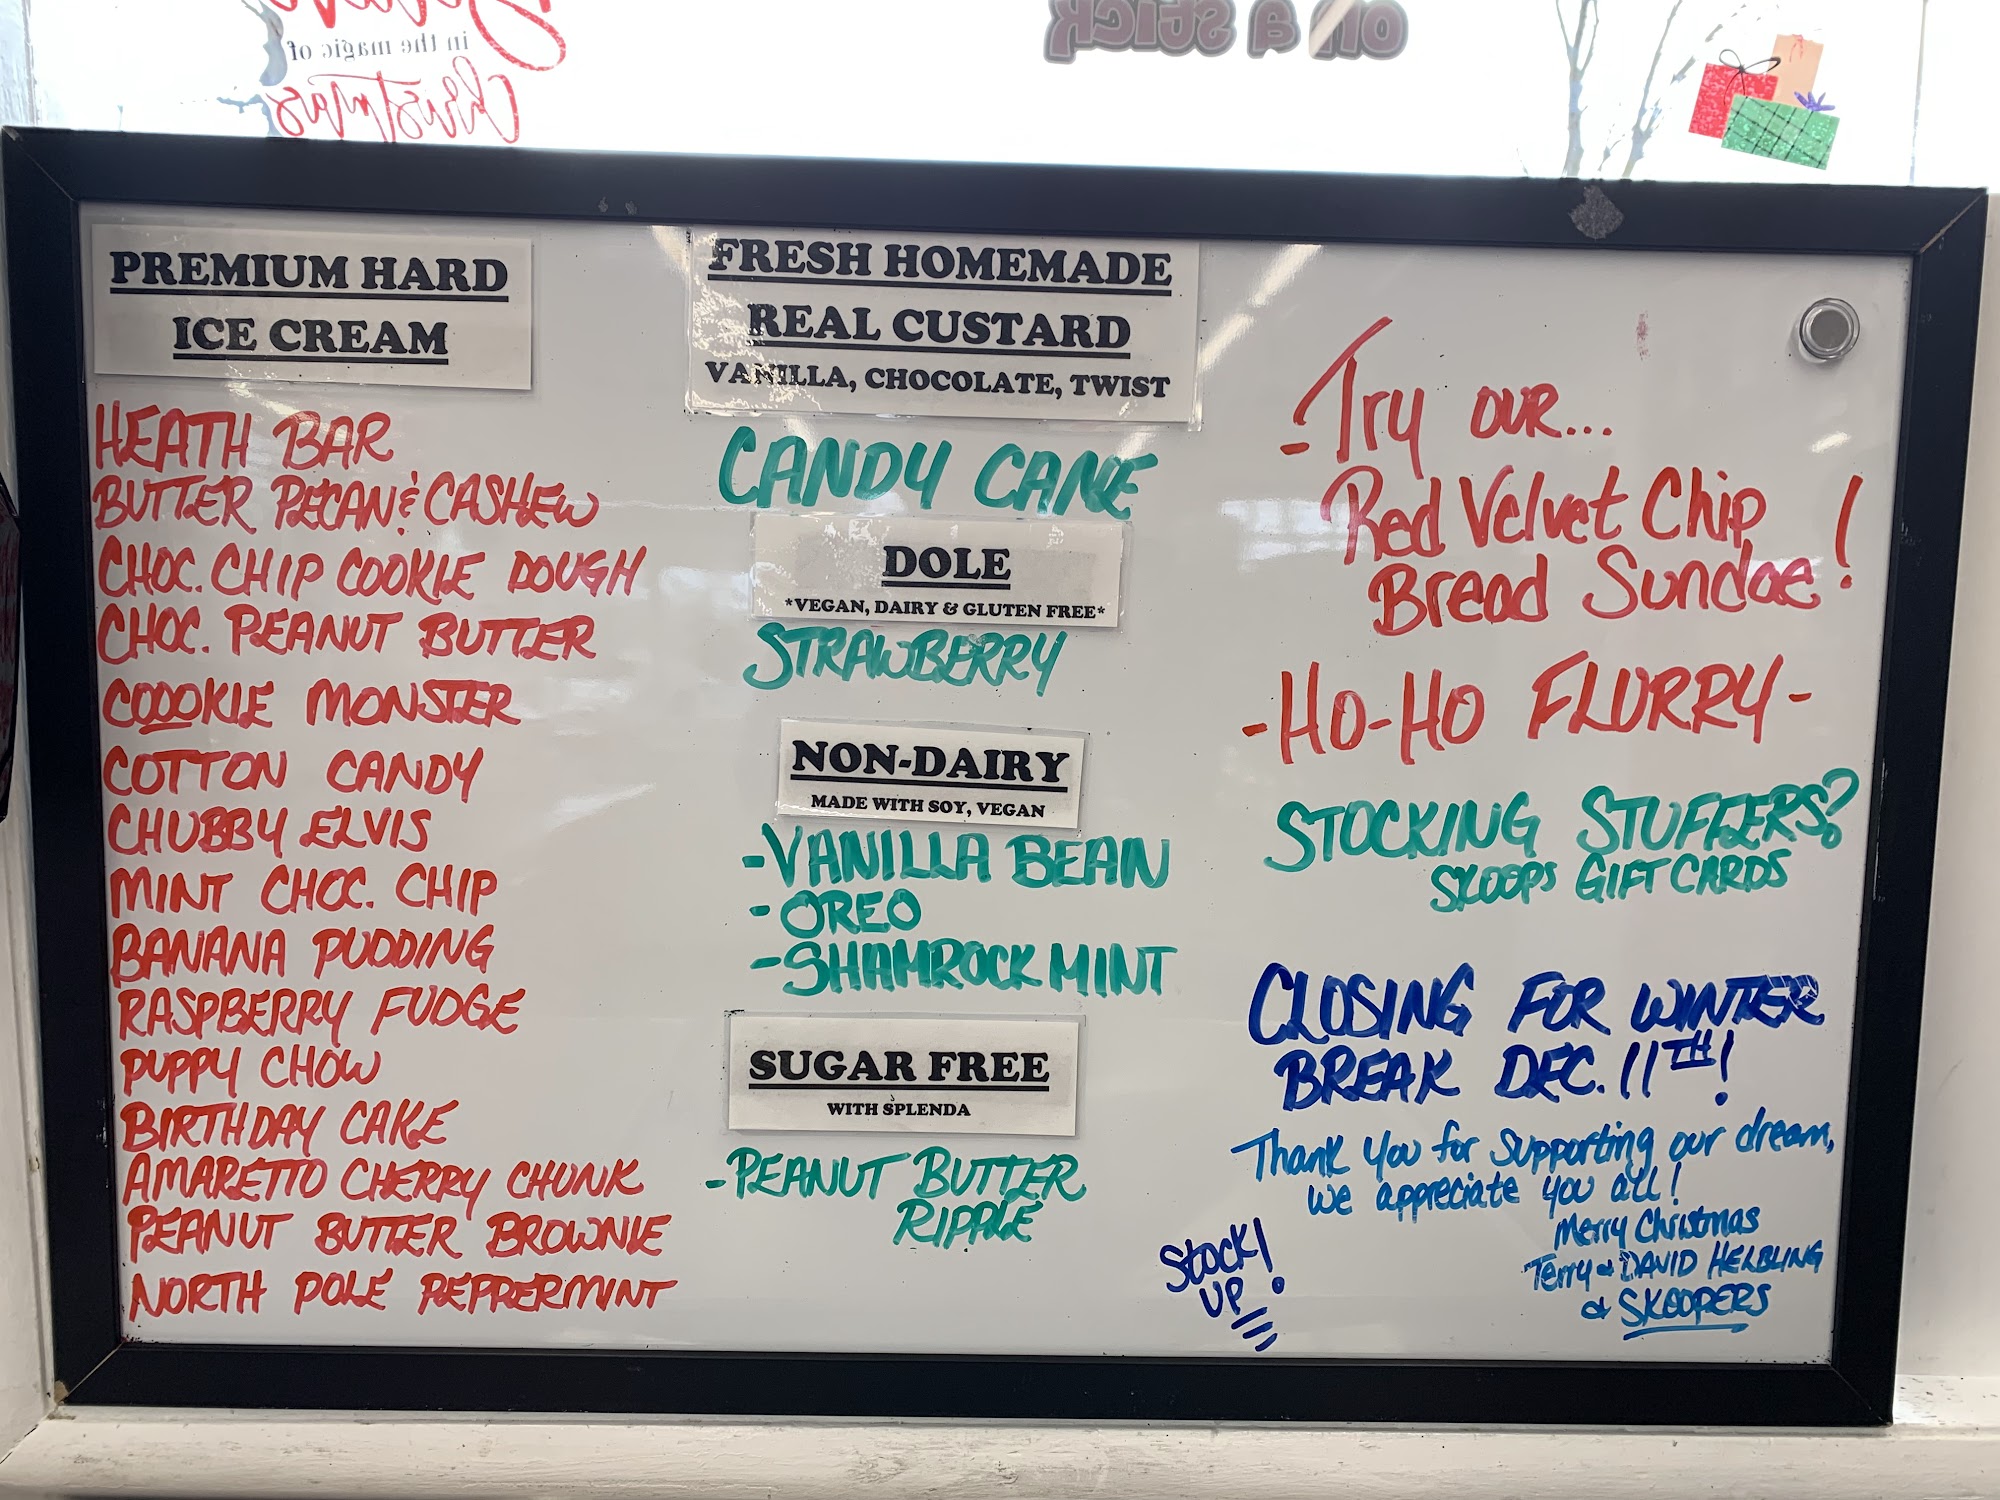 Believe
in the magic of
Christmas
on a stick
PREMIUM HARD
ICE CREAM
HEATH BAR
BUTTER PECAN & CASHEW
CHOC. CHIP COOKIE DOUGH
CHOC. PEANUT BUTTER
COOOKIE MONSTER
COTTON CANDY
CHUBBY ELVIS
MINT CHOC. CHIP
BANANA PUDDING
RASPBERRY FUDGE
PUPPY CHOW
BIRTHDAY CAKE
AMARETTO CHERRY CHUNK
PEANUT BUTTER BROWNIE
NORTH POLE PEPPERMINT
FRESH HOMEMADE
REAL CUSTARD
VANILLA, CHOCOLATE, TWIST
CANDY CANE
DOLE
*VEGAN, DAIRY & GLUTEN FREE*
STRAWBERRY
NON-DAIRY
MADE WITH SOY, VEGAN
-VANILLA BEAN
-OREO
-SHAMROCK MINT
SUGAR FREE
WITH SPLENDA
-PEANUT BUTTER
RIPPLE
-Try OUR...
Red Velvet Chip
Bread Sundae!
-HO-HO FLURRY-
STOCKING STUFFERS?
SKOOPS GIFT CARDS
CLOSING FOR WINTER
BREAK DEC. 11TH!
Thank you for supporting our dream,
we appreciate you all!
Merry Christmas
Terry & DAVID HELBLING
& SKOOPERS
STOCK
UP!